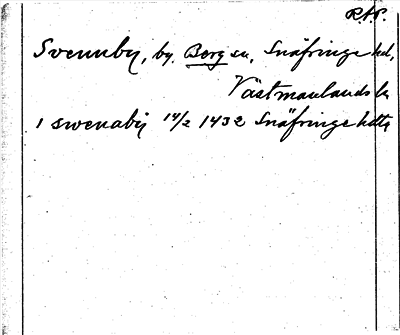 R.A.P.
Svennby, by, Berg sn, Snäfringe hd,
Västmanlands län
i swenaby 14/2 1432 Snäfringe hd